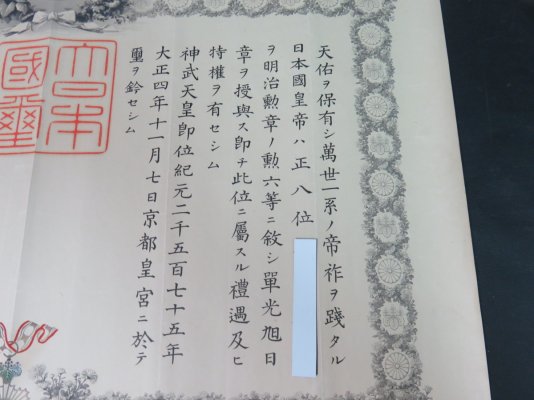 天佑ヲ保有シ萬世一系ノ帝祚ヲ踐タル
日本國皇帝ハ正八位
ヲ明治勲章ノ勲六等ニ敘シ單光旭日
章ヲ授與ス即チ此位ニ屬スル禮遇及ヒ
特權ヲ有セシム
神武天皇即位紀元二千五百七十五年
大正四年十一月七日京都皇宮ニ於テ
璽ヲ鈐セシム
大日本
國璽